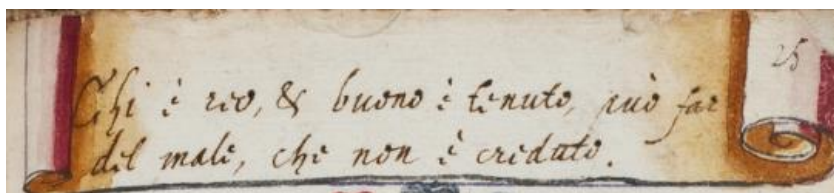 Chi è reo, & buono è tenuto, può far
del male, che non è creduto.
25